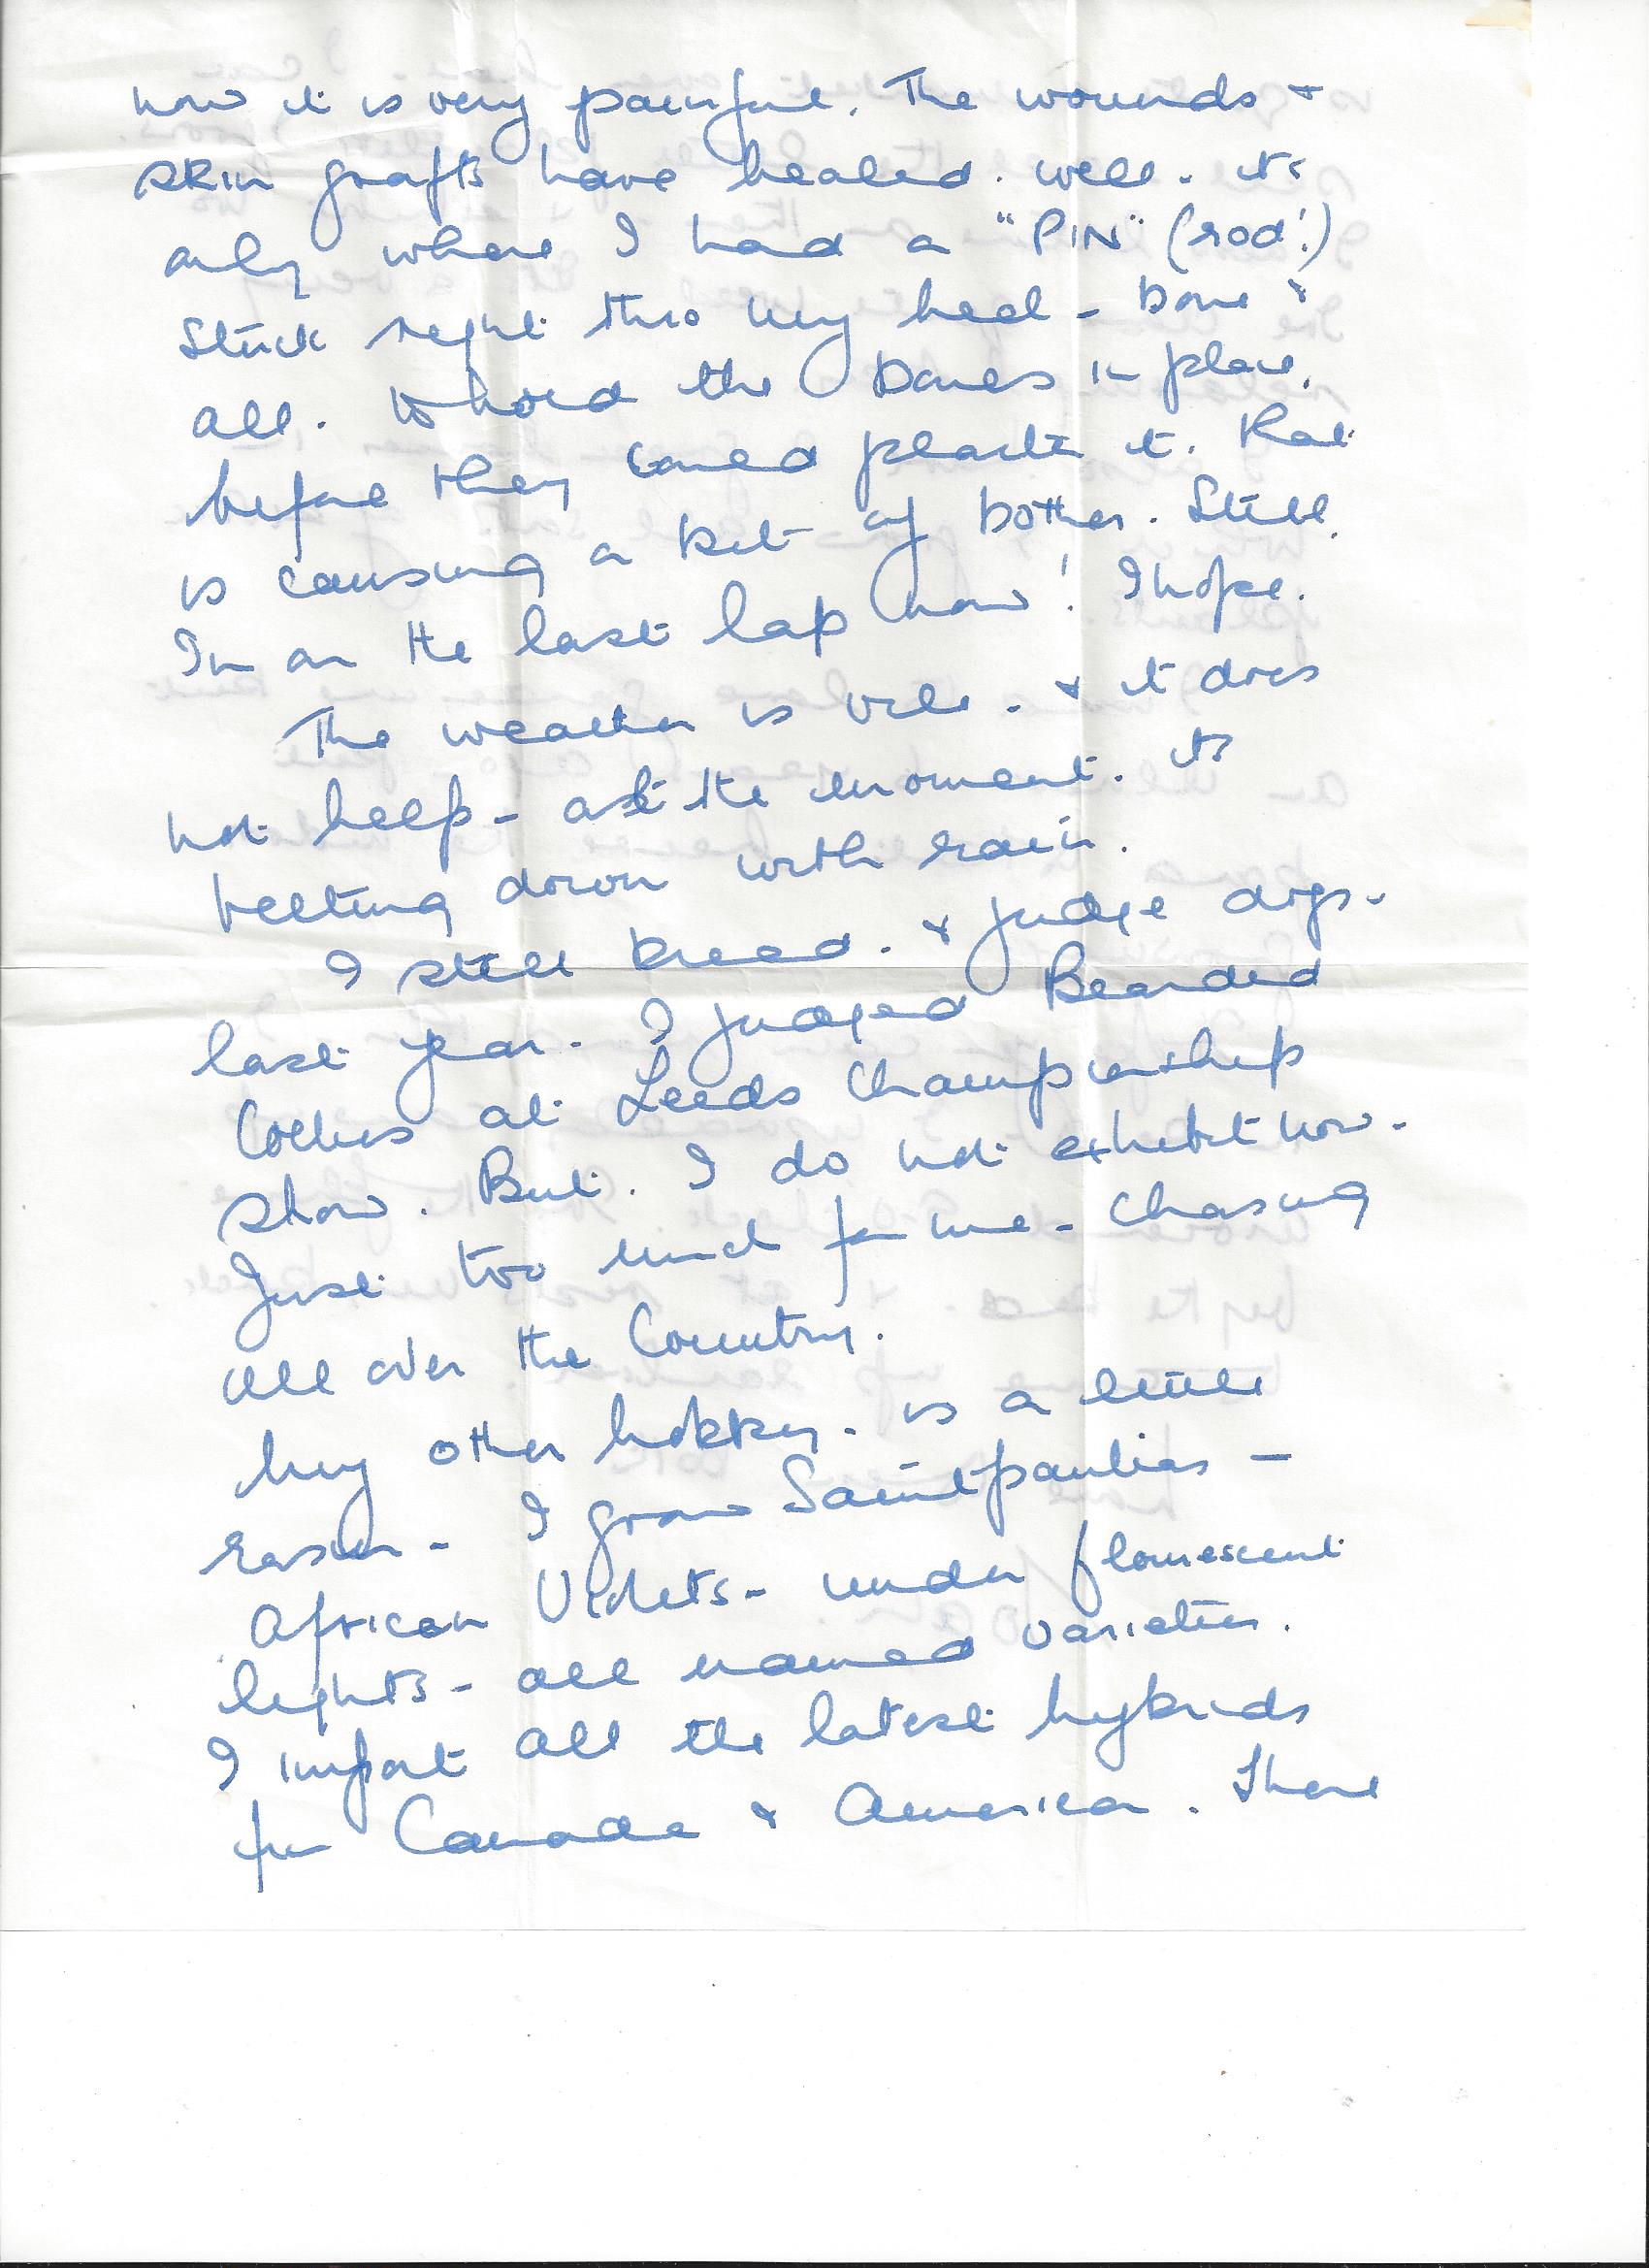 now it is very painful. The wounds &
skin grafts have healed. well. its
only where I had a "PIN" (rod!)
Stuck right thro my heel - bone &
all. to hold the bones in place.
before they could plaster it. that
is causing a bit of bother. Still.
Im on the last lap now! I hope.
The weather is vile. & it does
not help - at the moment. its
belting down with rain.
I still breed. & judge dogs.
last year. I judged Bearded
Collies at Leeds Championship
show. But. I do not exhibit now.
Just too much for me - chasing
all over the Country.
my other hobby. is a little
easier - I grow Saintpaulias -
African Violets - under flourescent
lights - all named varieties.
I import all the latest hybrids
from Canada & America. There